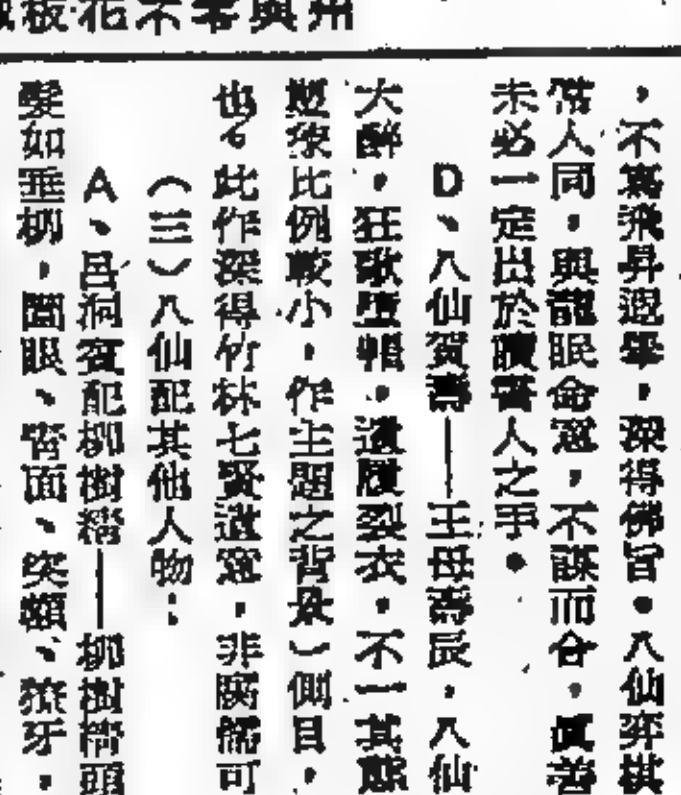 板花不零與州
，不寫飛昇遐舉，深得佛旨。八仙弈棋
常人同，與龍眠命意，不謀而合。眞善
未必一定出於讀書人之手。
D、八仙賀壽——王母壽辰，八仙
大醉，狂歌墮幘，遺履裂衣，不一其態
比例較小，作主題之背景）側目，
也。此作深得竹林七賢遺意，非腐儒可
（三）八仙配其他人物：
A、呂洞賓配柳樹精——柳樹精頭
髮如垂柳，圓眼、青面、突額、獠牙，